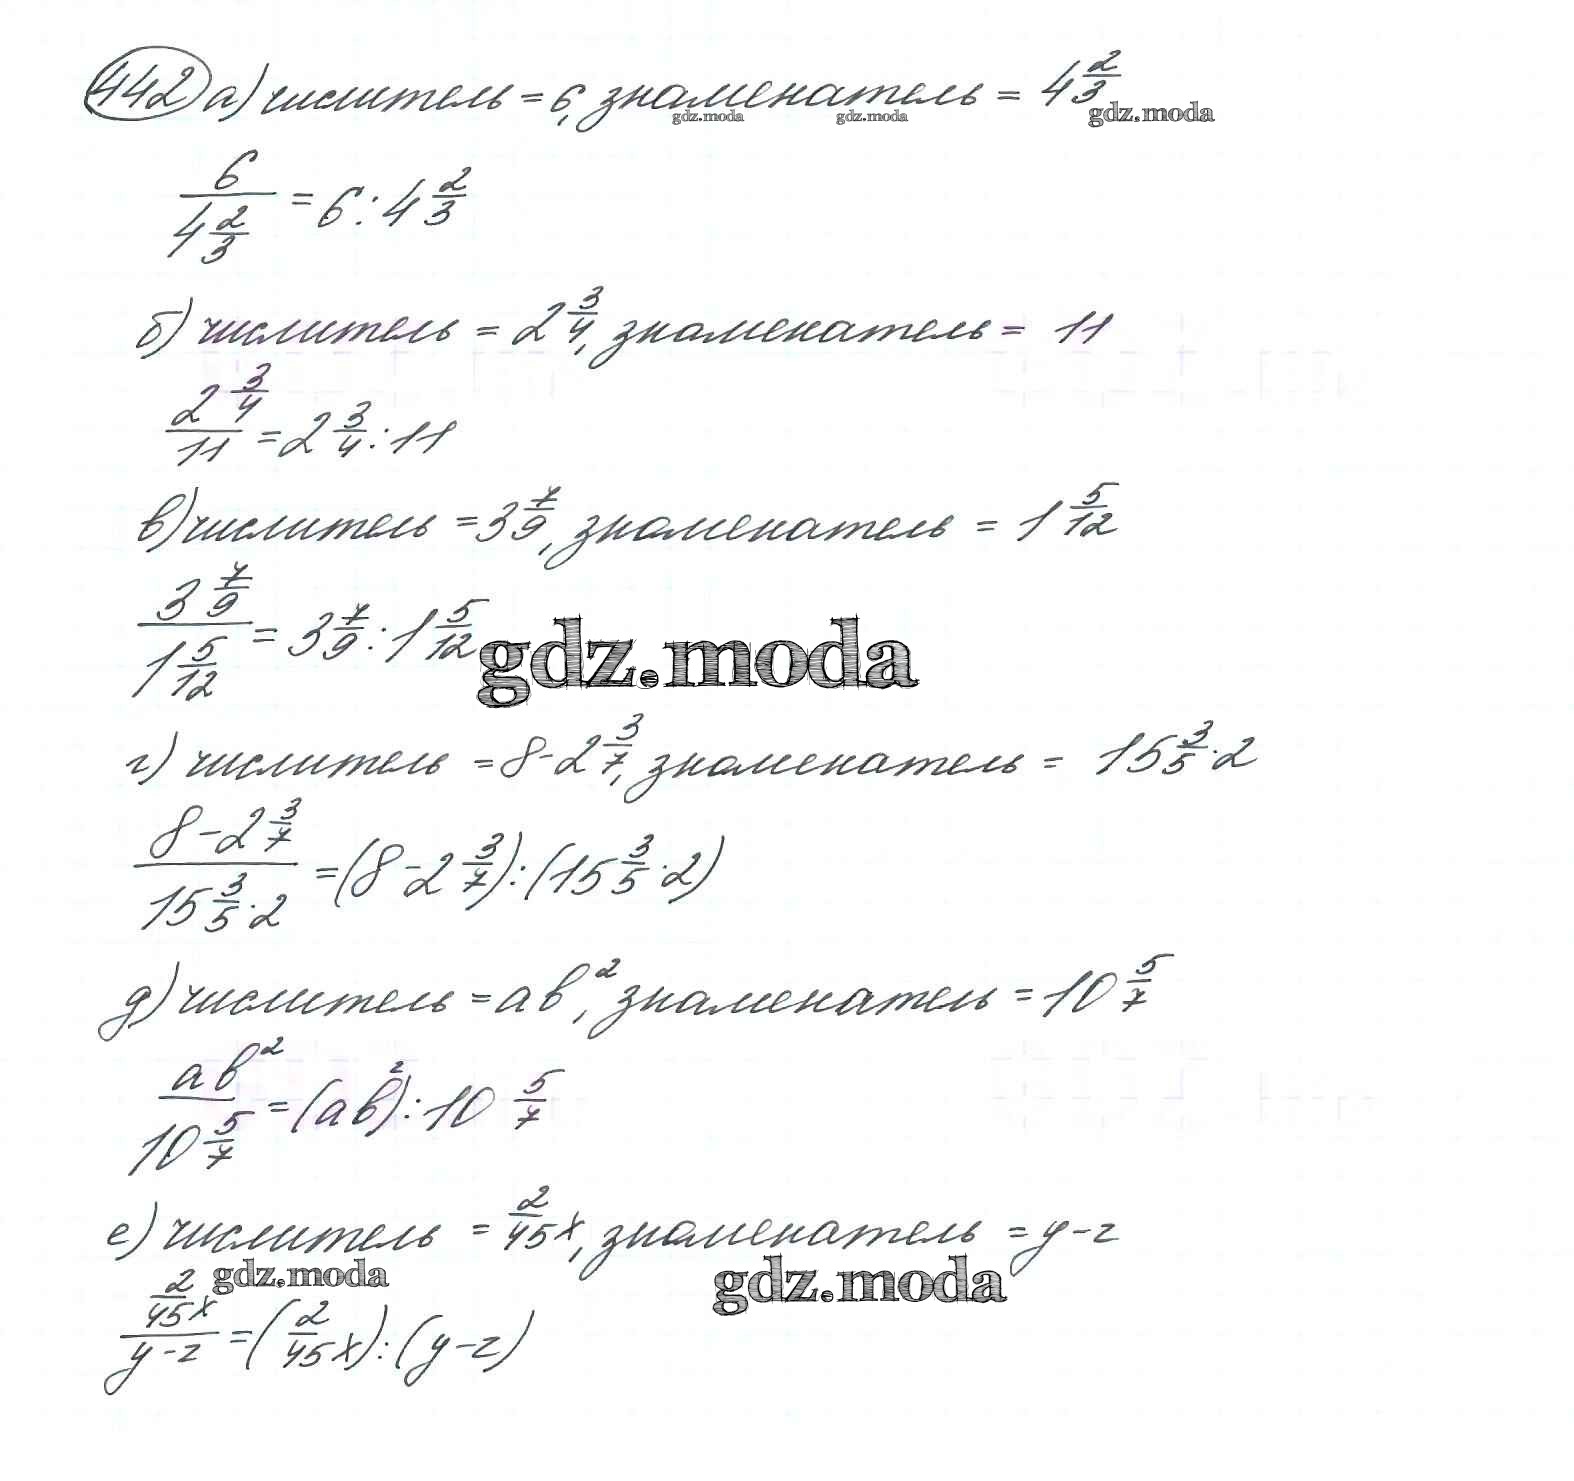 442 а) числитель = 6, знаменатель = 4 2/3
gdz.moda gdz.moda gdz.moda
6/(4 2/3) = 6 : 4 2/3
б) числитель = 2 3/4, знаменатель = 11
(2 3/4)/11 = 2 3/4 : 11
в) числитель = 3 7/9, знаменатель = 1 5/12
(3 7/9)/(1 5/12) = 3 7/9 : 1 5/12
gdz.moda
г) числитель = 8 - 2 3/7, знаменатель = 15 3/5 · 2
(8 - 2 3/7)/(15 3/5 · 2) = (8 - 2 3/7) : (15 3/5 · 2)
д) числитель = ab², знаменатель = 10 5/7
ab²/(10 5/7) = (ab²) : 10 5/7
е) числитель = 2/45 x, знаменатель = y - z
gdz.moda gdz.moda
(2/45 x)/(y - z) = (2/45 x) : (y - z)